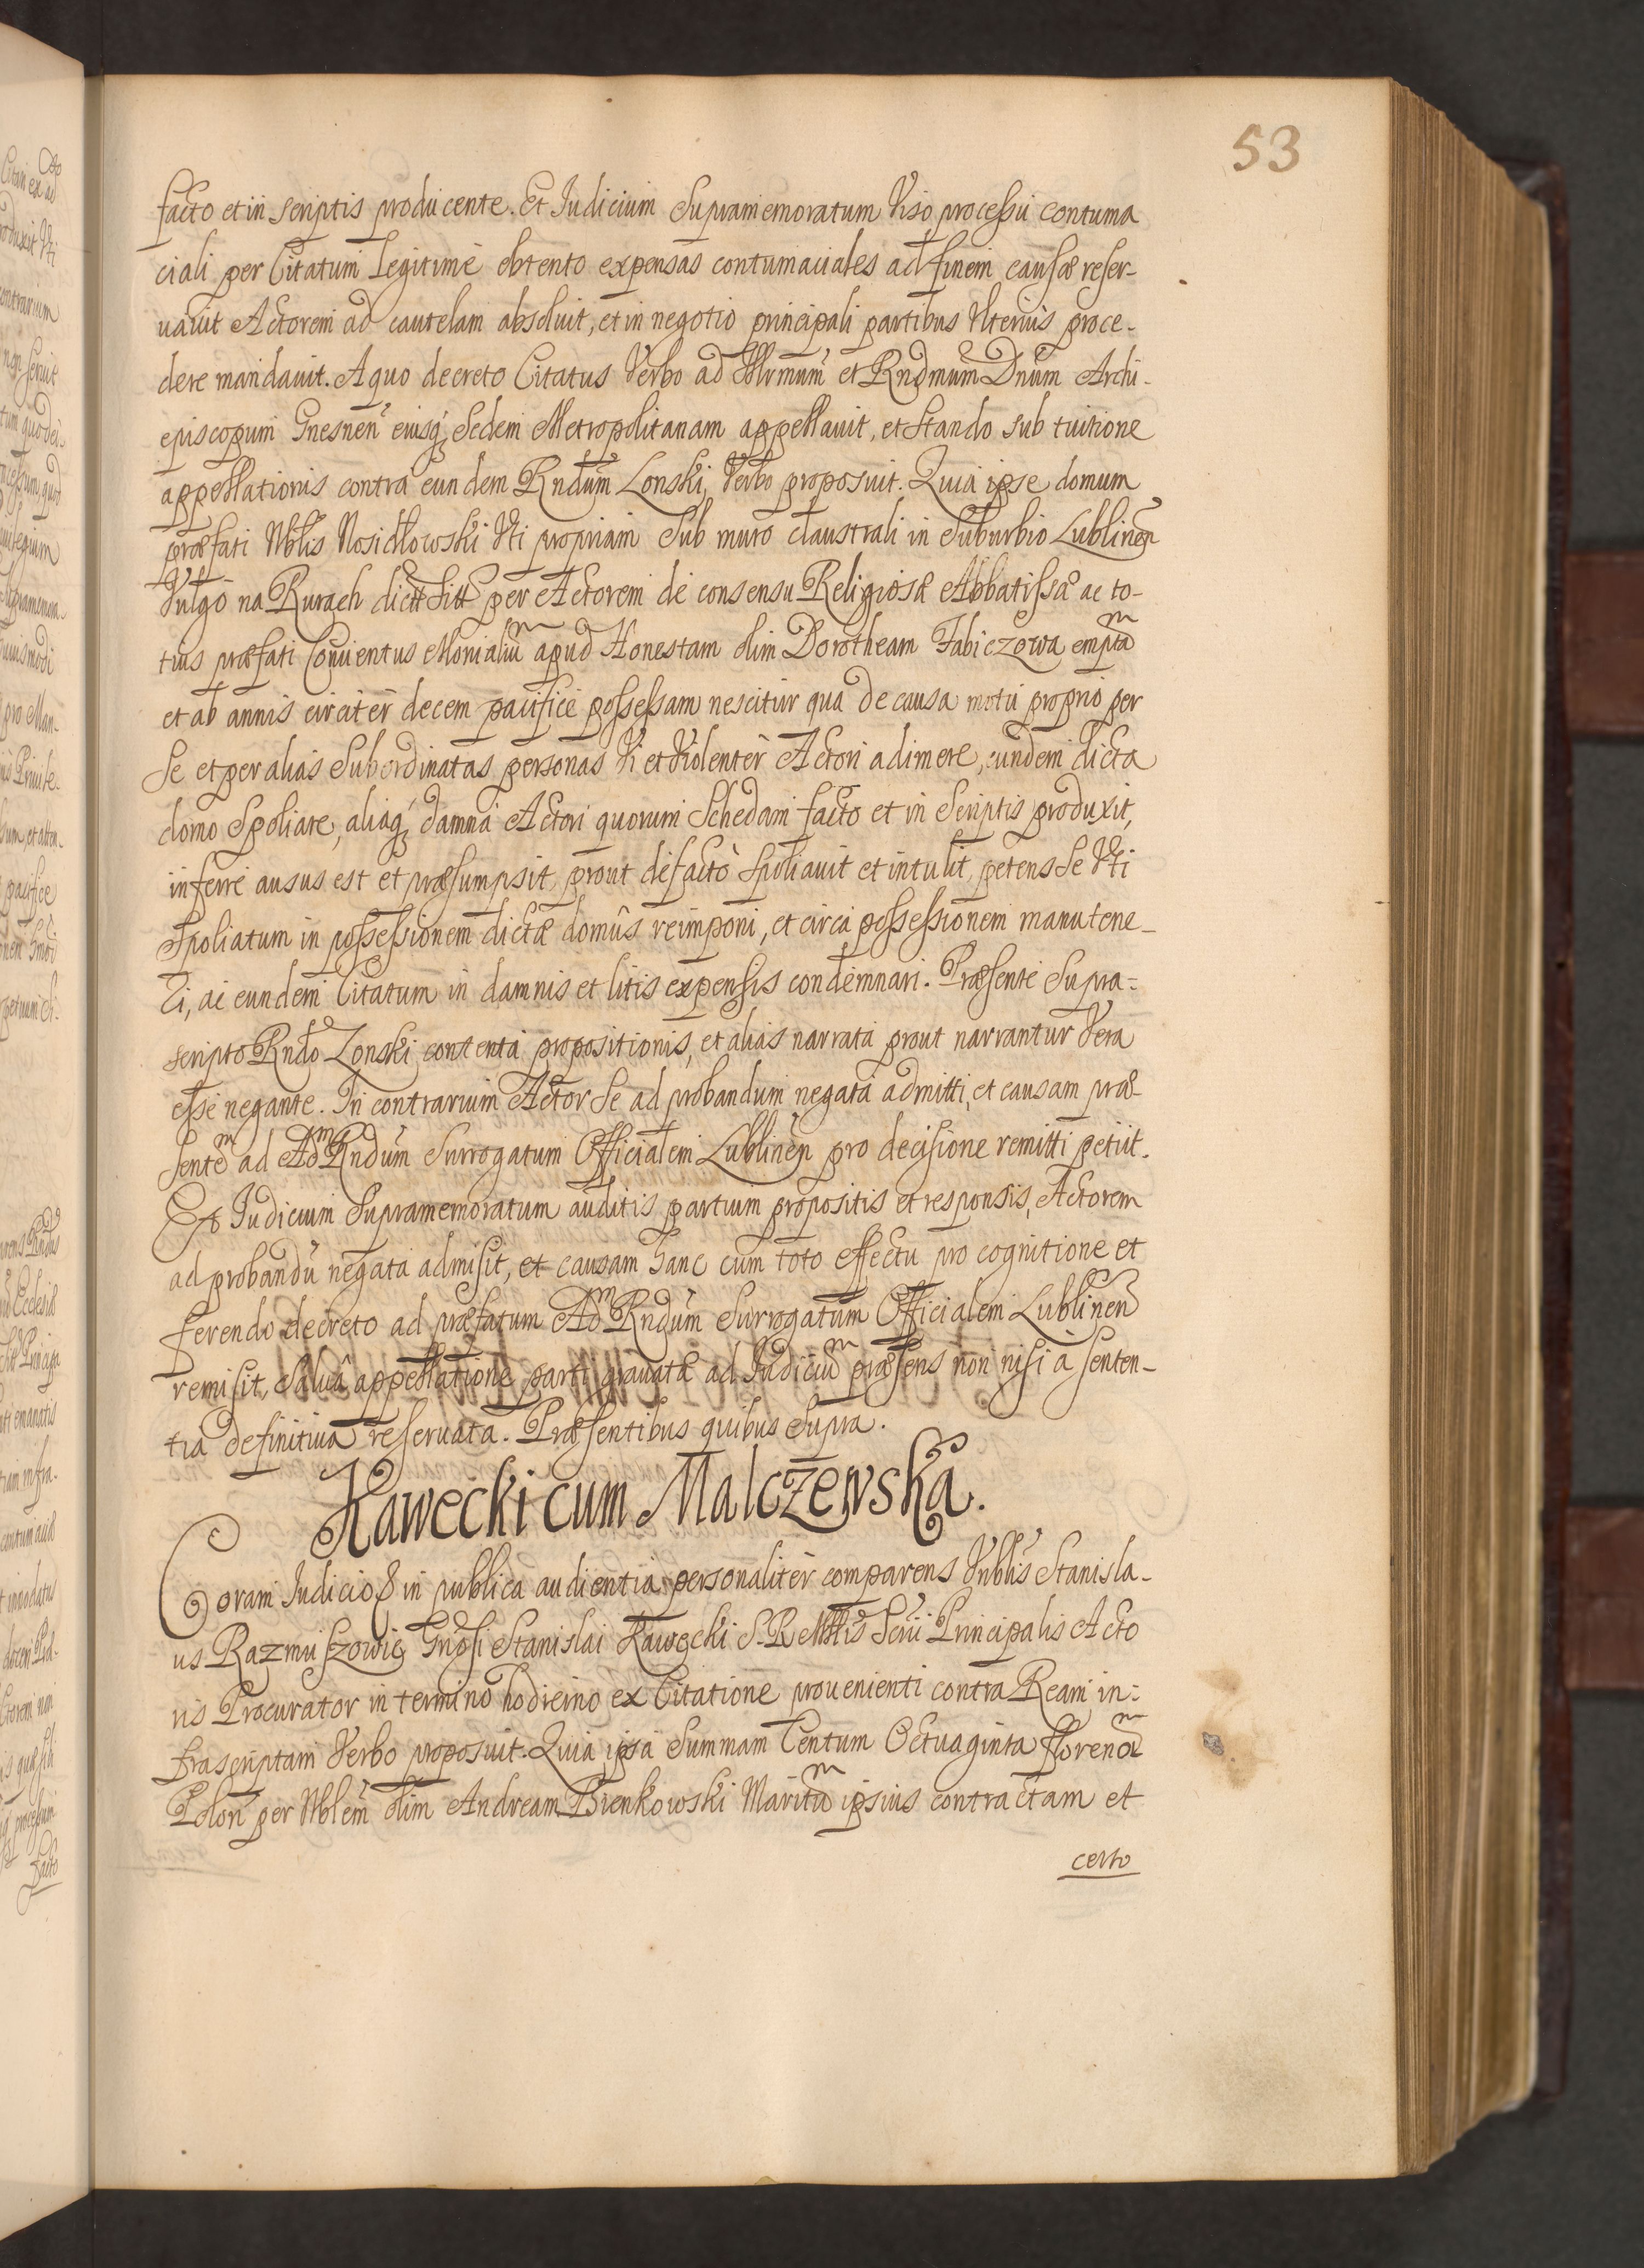 53
facto et in scriptis producente. Et Judicium Supramemoratum Viso processu contuma
ciali per Citatum Legitime obtento expensas contumaciales ad finem causæ reser-
uauit Actorem ad cautelam absoluit, et in negotio principali partibus Vlterius proce-
dere mandauit. A quo decreto Citatus Verbo ad Illrmum et Rndmum Dnum Archi-
episcopum Gnesnen eiusq Sedem Metropolitanam appellauit, et Stando sub tuitione
appellationis contra eundem Rndum Lonski Verbo proposuit. Quia ipse domum
præfati Nblis Nosidłowski Vti propriam Sub muro claustrali in Suburbio Lublinen
Vulgo na Rurach dict sitt per Actorem de consensu Religiosæ Abbatissæ ac to-
tius præfati Conuentus Monialium apud Honestam olim Dorotheam Fabiczowa emptam
et ab annis circiter decem pacifice possessam nescitur qua de causa motu proprio per
Se et per alias Subordinatas personas Vi et Violenter Actori adimere, eundem dicta
domo Spoliare, aliaq damna Actori quorum Schedam facto et in Scriptis produxit,
inferre ausus est et præsumpsit, prout de facto Spoliauit et intulit, petens Se Vti
Spoliatum in possessionem dictæ domus reimponi, et circa possessionem manutene-
ri, ac eundem Citatum in damnis et litis expensis condemnari. Præsente Supra-
scripto Rndo Lonski contenta propositionis, et alias narrata prout narrantur Vera
esse negante. In contrarium Actor Se ad probandum negata admitti, et causam præ-
sentem ad Adm Rndum Surrogatum Officialem Lublinen pro decisione remitti petiit.
Et Judicium Supramemoratum auditis partium propositis et responsis, Actorem
ad probandu negata admisit, et causam hanc cum toto effectu pro cognitione et
ferendo decreto ad præfatum Adm Rndum Surrogatum Officialem Lublinen
remisit, Salua appellatione parti grauatæ ad Judicium præsens non nisi a senten-
tia definitiua reseruata. Præsentibus quibus Supra.
Kawecki cum Malczewska.
Coram Judicio & in publica audientia personaliter comparens Nblis Stanisla-
us Razmuszowic Gnosi Stanislai Kawecki S. R. Mttis Principalis Acto
ris Procurator in termino hodierno ex Citatione prouenienti contra Ream in-
frascriptam Verbo proposuit. Quia ipsa Summam Centum Octuaginta florenorum
Polon per Nblem olim Andream Bienkowski Maritum ipsius contractam et
certo